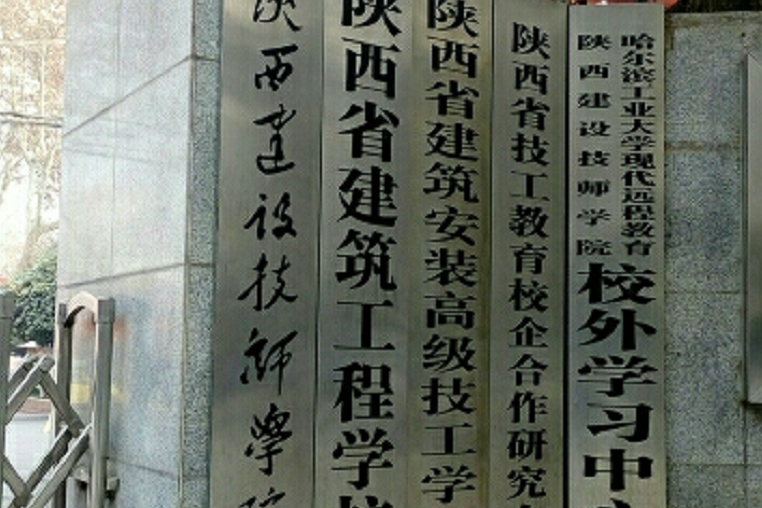 陕西建设技师学院
陕西省建筑工程学校
陕西省建筑安装高级技工学
陕西省技工教育校企合作研究
哈尔滨工业大学现代远程教育
陕西建设技师学院
校外学习中